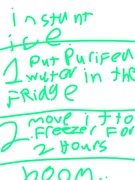 instant
ice
1 Put Purifed
water in the
FRidge
2. move it to
freezer For
2 Hours
boom..